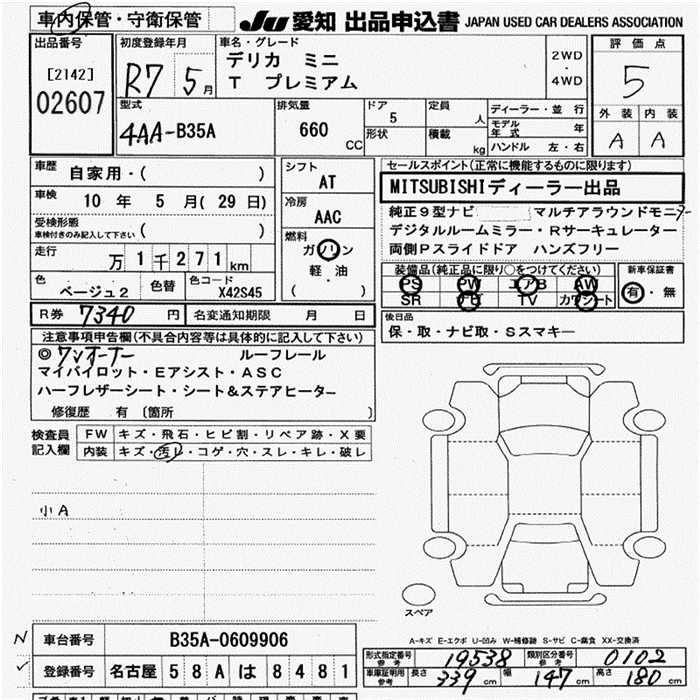 車内保管・守衛保管
JU 愛知 出品申込書 JAPAN USED CAR DEALERS ASSOCIATION
出品番号
[2142]
02607
初度登録年月
R7 5月
車名・グレード
デリカ ミニ
T プレミアム
2WD
・
4WD
評価点
5
外装 内装
A A
型式
4AA-B35A
排気量
660 CC
ドア
5
形状
定員
人
積載
kg
ディーラー・並行
モデル年式 年
ハンドル 左・右
車歴
自家用・( )
車検
10 年 5 月(29 日)
受検形態
車検付きのみ記入して下さい ( )
走行
万 1 千 2 7 1 km
色
ベージュ2
色替
色コード
X42S45
シフト
AT
冷房
AAC
燃料
ガソリン
軽・油
( )
R券 7340 円 名変通知期限 月 日
セールスポイント(正常に機能するものに限ります)
MITSUBISHIディーラー出品
純正9型ナビ マルチアラウンドモニター
デジタルルームミラー・Rサーキュレーター
両側Pスライドドア ハンズフリー
装備品(純正品に限り○をつけてください)
PS PW エアB AW
SR ナビ TV カワシート
新車保証書
有・無
後日品
保・取・ナビ取・Sスマキー
注意事項申告欄(不具合内容等は具体的に記入して下さい)
◎ワンオーナー ルーフレール
マイパイロット・Eアシスト・ASC
ハーフレザーシート・シート&ステアヒーター
修復歴 有 〔箇所 〕
検査員記入欄
FW キズ・飛石・ヒビ割・リペア跡・X要
内装 キズ・汚レ・コゲ・穴・スレ・キレ・破レ
小A
スペア
A-キズ E-エクボ U-凹み W-補修跡 S-サビ C-腐食 XX-交換済
N 車台番号 B35A-0609906
✓ 登録番号 名古屋 5 8 A は 8 4 8 1
形式指定番号 参考 19538 類別区分番号 参考 0102
車庫証明用 参考 長さ 339 cm 幅 147 cm 高さ 180 cm